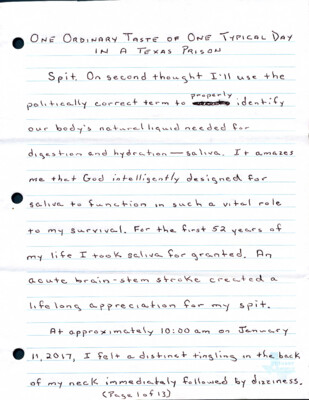 ONE ORDINARY TASTE OF ONE TYPICAL DAY
IN A TEXAS PRISON
Spit. On second thought I'll use the
politically correct term to properly identify
our body's natural liquid needed for
digestion and hydration — saliva. It amazes
me that God intelligently designed for
saliva to function in such a vital role
to my survival. For the first 52 years of
my life I took saliva for granted. An
acute brain-stem stroke created a
lifelong appreciation for my spit.
At approximately 10:00 am on January
11, 2017, I felt a distinct tingling in the back
of my neck immediately followed by dizziness.
(Page 1 of 13)